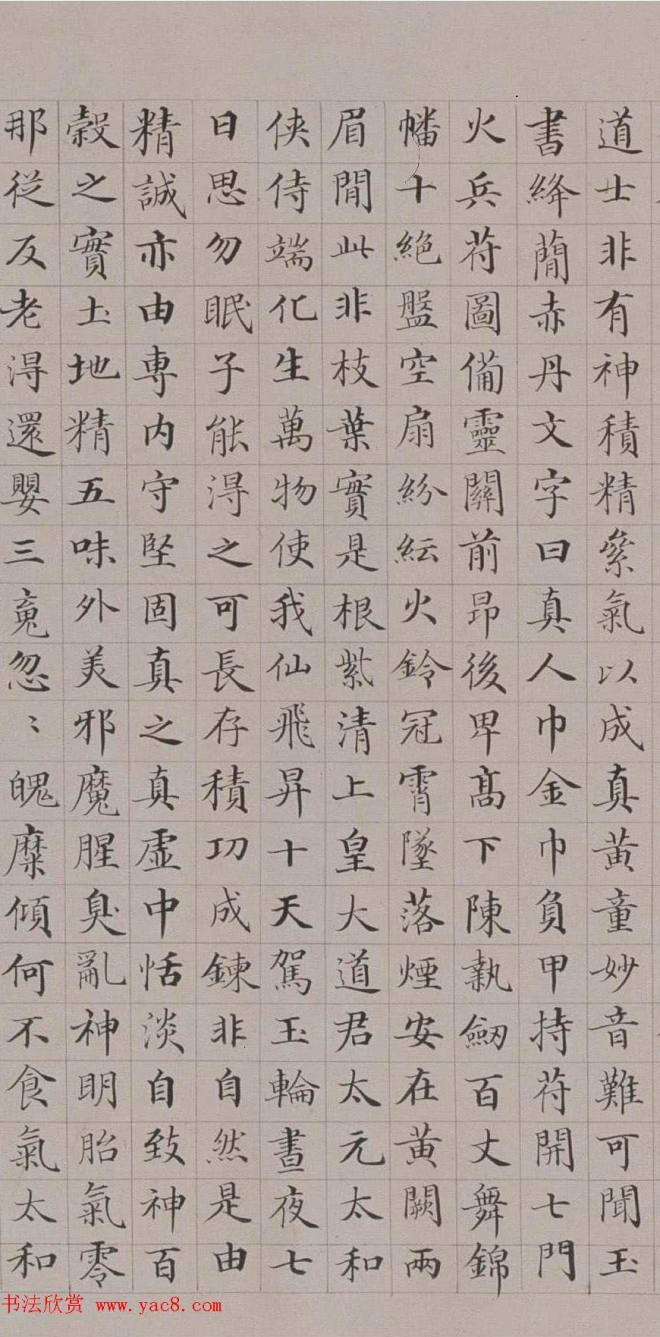 道士非有神積精絫氣以成真黄童妙音難可聞玉
書絳蕳赤丹文字曰真人巾金巾負甲持苻開七門
火兵苻圖備靈關前昂後卑髙下陳執劒百丈舞錦
幡十絶盤空扇紛紜火鈴冠霄墜落煙安在黄闕兩
眉閒此非枝葉實是根紫清上皇大道君太元太和
侠侍端化生萬物使我仙飛昇十天駕玉輪晝夜七
日思勿眠子能淂之可長存積功成鍊非自然是由
精誠亦由専内守堅固真之真虚中恬淡自致神百
穀之實土地精五味外美邪魔腥臭亂神明胎氣零
那從反老淂還嬰三䰟忽〻魄糜傾何不食氣太和
书法欣赏 www.yac8.com